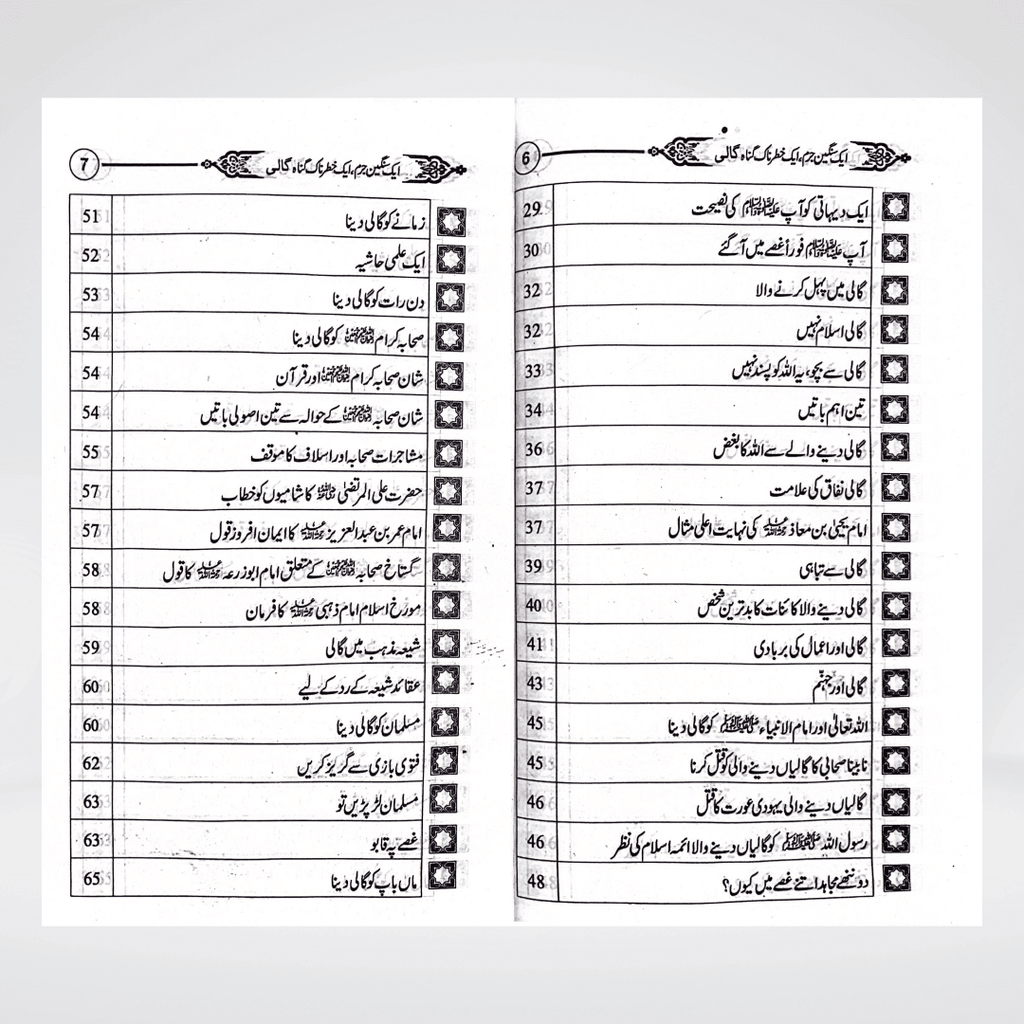 6
ایک سنگین جرم، ایک خطرناک گناہ گالی
ایک دیہاتی کو آپ ﷺ کی نصیحت 29
آپ ﷺ فوراً غصے میں آ گئے 30
گالی میں پہل کرنے والا 32
گالی اسلام نہیں 32
گالی سے بچو، یہ اللہ کو پسند نہیں 33
تین اہم باتیں 34
گالی دینے والے سے اللہ کا بغض 36
گالی نفاق کی علامت 37
امام یحییٰ بن معاذ رحمہ اللہ کی نہایت اعلیٰ مثال 37
گالی سے تباہی 39
گالی دینے والا کائنات کا بدترین شخص 40
گالی اور اعمال کی بربادی 41
گالی اور جہنّم 43
اللہ تعالیٰ اور امام الانبیاء ﷺ کو گالی دینا 45
نابینا صحابی کا گالیاں دینے والی کو قتل کرنا 45
گالیاں دینے والی یہودی عورت کا قتل 46
رسول اللہ ﷺ کو گالیاں دینے والا ائمہ اسلام کی نظر 46
دو ننھے مجاہد اتنے غصے میں کیوں؟ 48
7
ایک سنگین جرم، ایک خطرناک گناہ گالی
زمانے کو گالی دینا 51
ایک علمی حاشیہ 52
دن رات کو گالی دینا 53
صحابہ کرام رضی اللہ عنہم کو گالی دینا 54
شان صحابہ کرام رضی اللہ عنہم اور قرآن 54
شان صحابہ رضی اللہ عنہم کے حوالہ سے تین اصولی باتیں 54
مشاجرات صحابہ اور اسلاف کا موقف 55
حضرت علی المرتضیٰ رضی اللہ عنہ کا شامیوں کو خطاب 57
امام عمر بن عبدالعزیز رحمہ اللہ کا ایمان افروز قول 57
گستاخ صحابہ رضی اللہ عنہم کے متعلق امام ابوزرعہ رحمہ اللہ کا قول 58
مورخ اسلام امام ذہبی رحمہ اللہ کا فرمان 58
شیعہ مذہب میں گالی 59
عقائد شیعہ کے رد کے لیے 60
مسلمان کو گالی دینا 60
فتویٰ بازی سے گریز کریں 62
مسلمان لڑ پڑیں تو 63
غصے پہ قابو 63
ماں باپ کو گالی دینا 65